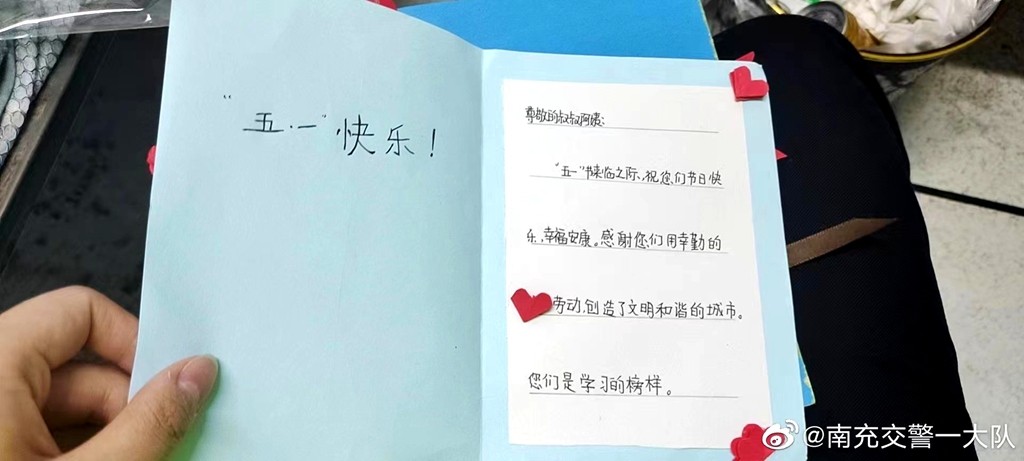 “五·一”快乐！
尊敬的叔叔阿姨：
“五一”节来临之际，祝您们节日快
乐，幸福安康。感谢您们用辛勤的
劳动，创造了文明和谐的城市。
您们是学习的榜样。
@南充交警一大队